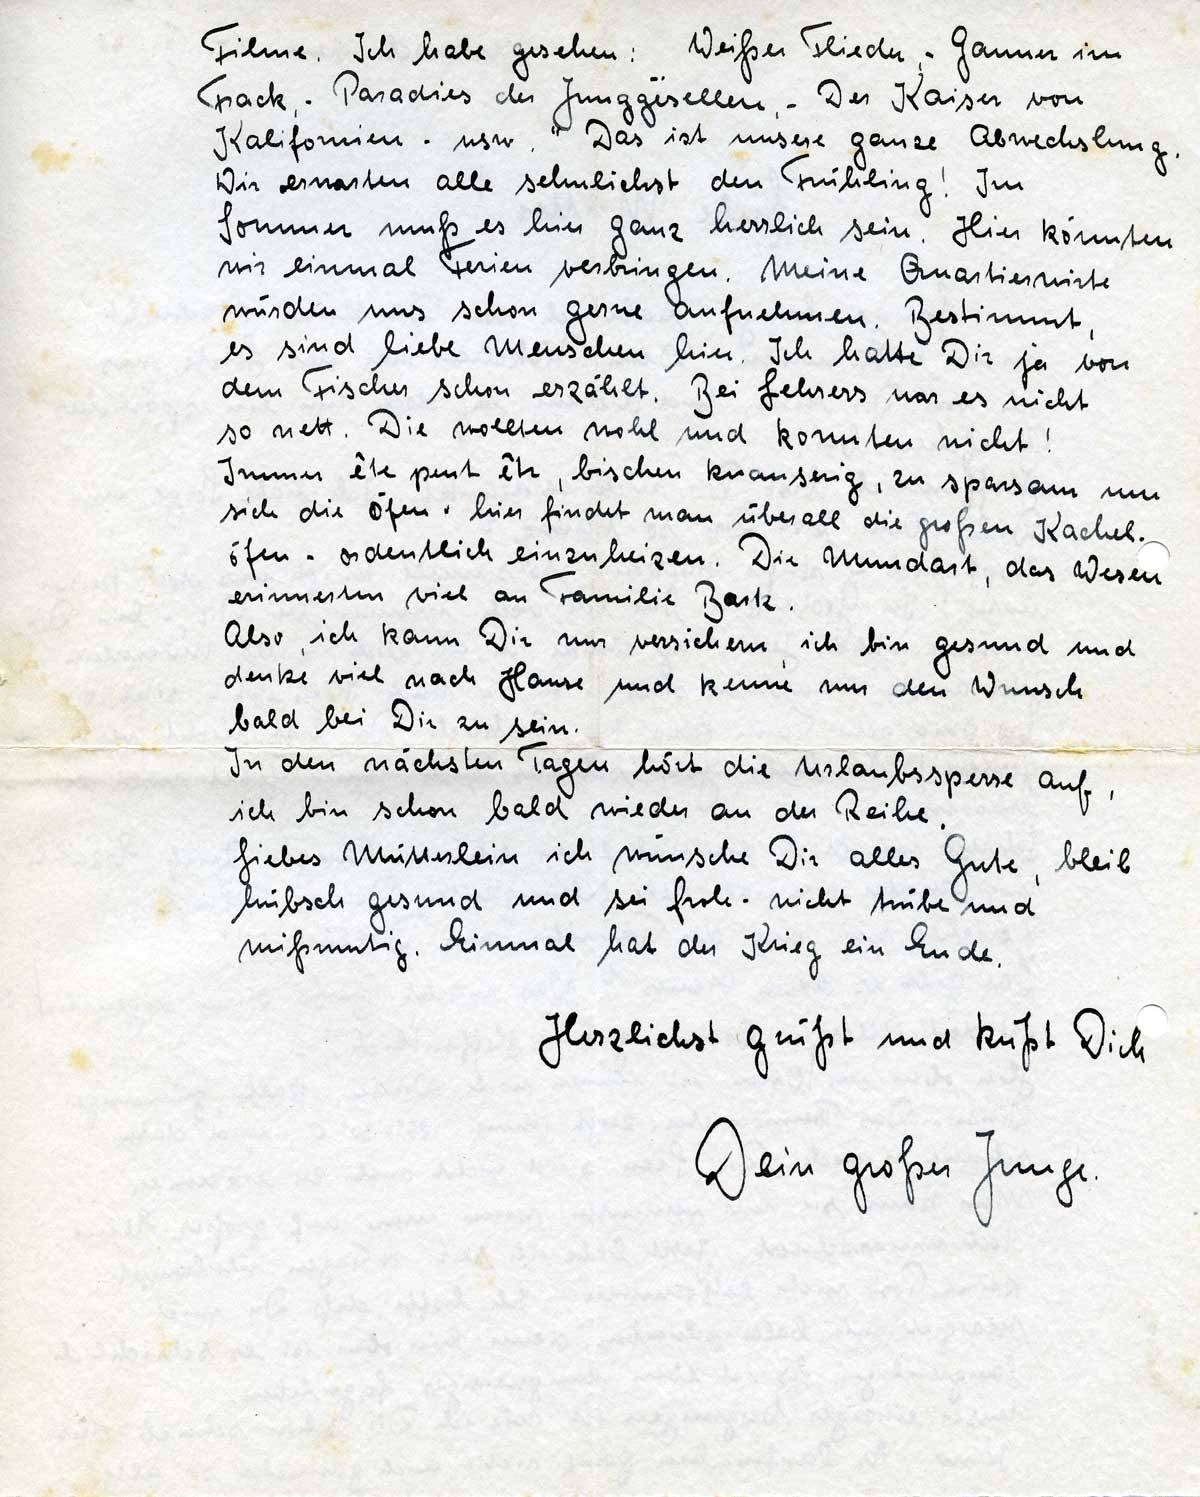 Filme. Ich habe gesehen: Weißer Flieder,- Gauner im
Frack,- Paradies der Junggesellen,- Der Kaiser von
Kalifornien - usw." Das ist unsere ganze Abwechslung.
Wir erwarten alle sehnlichst den Frühling! Im
Sommer muß es hier ganz herrlich sein. Hier könnten
wir einmal Ferien verbringen. Meine Quartierwirte
würden uns schon gerne aufnehmen. Bestimmt,
es sind liebe Menschen hier. Ich hatte Dir ja von
dem Fischer schon erzählt. Bei Lehrers war es nicht
so nett. Die wollten wohl und konnten nicht!
Immer ête peut ête, bischen knauserig, zu sparsam um
sich die Öfen - hier findet man überall die großen Kachel-
öfen - ordentlich einzuheizen. Die Mundart, das Wesen
erinnerten viel an Familie Bark.
Also, ich kann Dir nur versichern, ich bin gesund und
denke viel nach Hause und kenne nur den Wunsch
bald bei Dir zu sein.
In den nächsten Tagen hört die Urlaubssperre auf,
ich bin schon bald wieder an der Reihe.
Liebes Mütterlein ich wünsche Dir alles Gute, bleib
hübsch gesund und sei froh - nicht trübe und
mißmutig. Einmal hat der Krieg ein Ende.
Herzlichst grüßt und küßt Dich
Dein großer Junge.